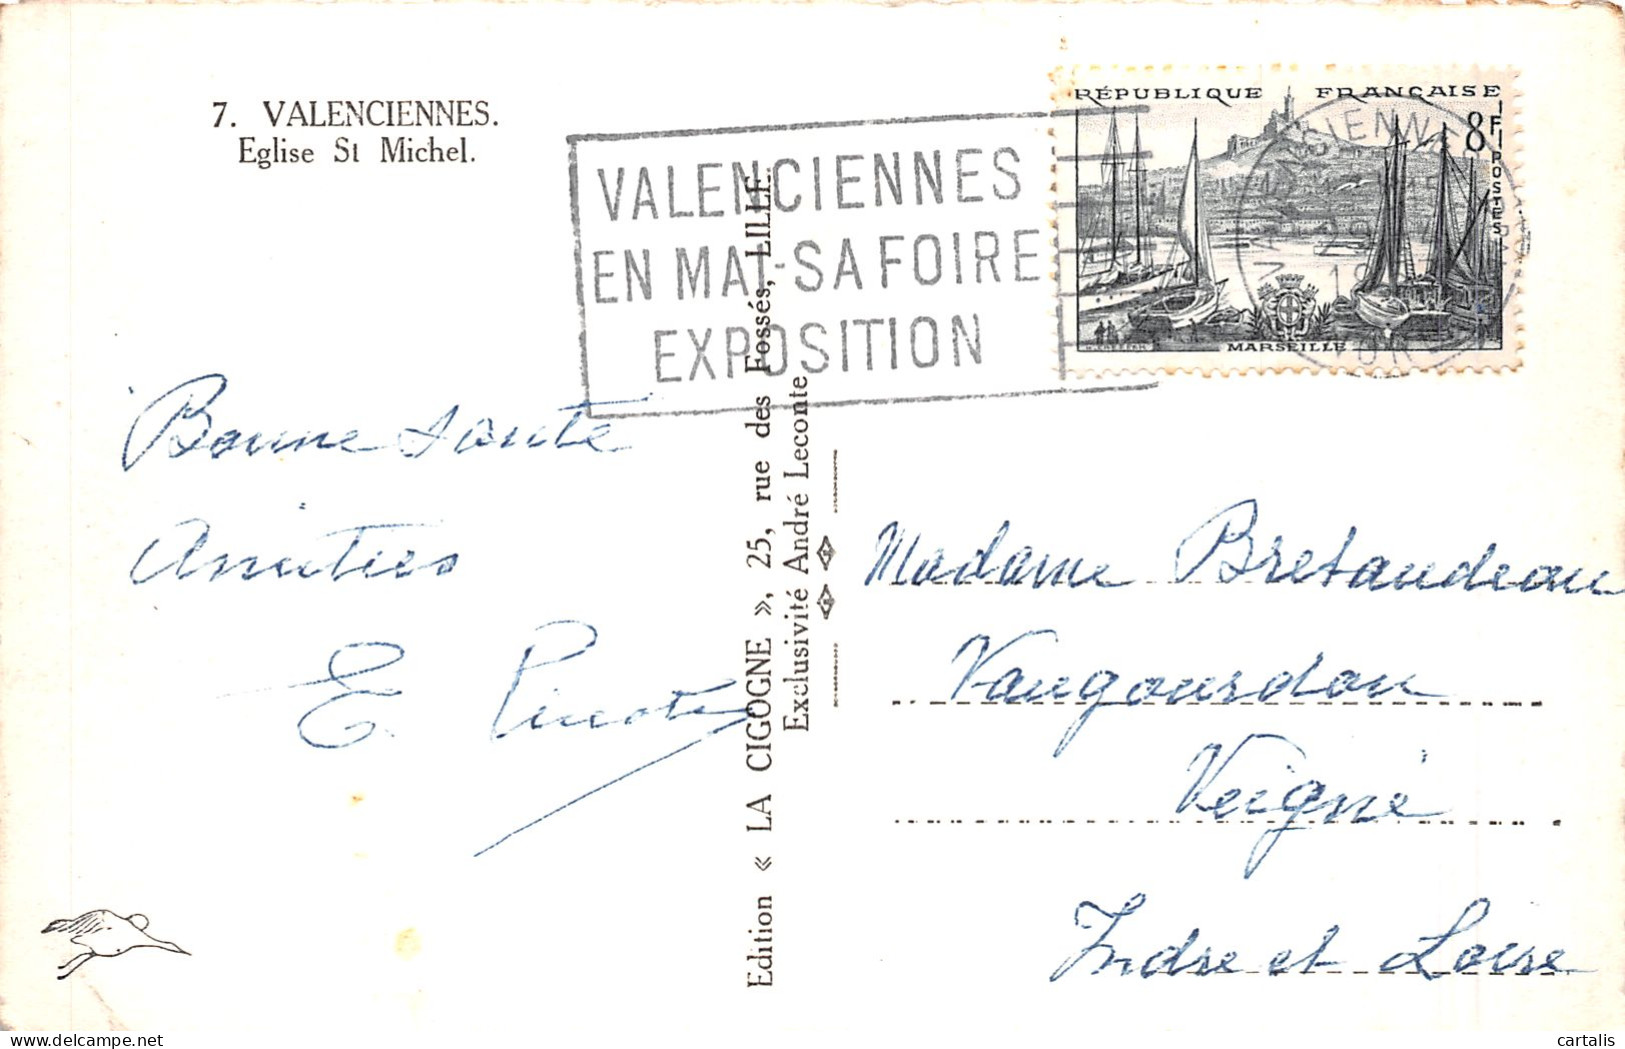 7. VALENCIENNES.
Eglise St Michel.
VALENCIENNES
EN MAI-SA FOIRE
EXPOSITION
RÉPUBLIQUE FRANÇAISE
8F
POSTES
MARSEILLE
VALENCIENNES
NORD
Bonne santé
Amitiés
E. Pinot
Edition « LA CIGOGNE », 25, rue des Fossés, LILLE
Exclusivité André Leconte
Madame Bretaudeau
Vaugourdon
Veigné
Indre et Loire
cartalis